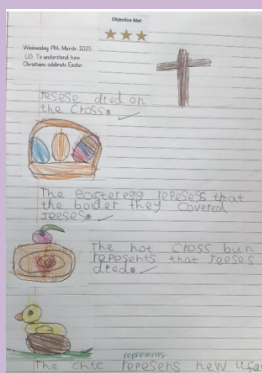 Objective Met
Wednesday 19th March, 2025
LO: To understand how
Christians celebrate Easter
Jesese died on
the cross.
The easteregg repesess that
the bolder they covered
Jeeses.
The hot cross bun
repesents that Jeeses
died.
represents
The chic repesens new lifa